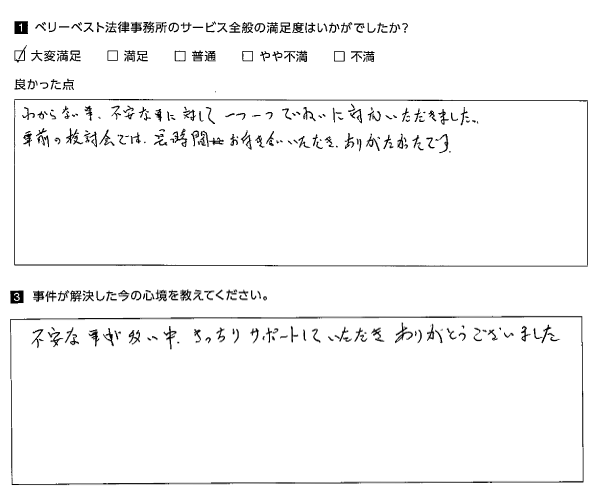 1 ベリーベスト法律事務所のサービス全般の満足度はいかがでしたか？
☑ 大変満足 □ 満足 □ 普通 □ やや不満 □ 不満
良かった点
わからない事、不安な事に対して一つ一つていねいに対応いただきました。
事前の検討会では、長時間お付き合いいただき、ありがたかったです。
3 事件が解決した今の心境を教えてください。
不安な事が多い中、きっちりサポートしていただきありがとうございました